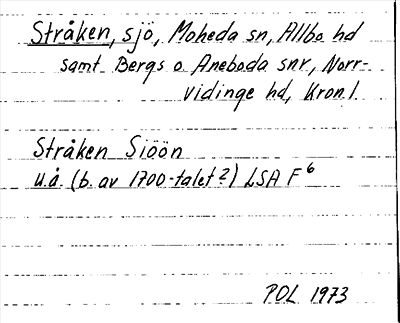 Stråken, sjö, Moheda sn, Allbo hd
samt Bergs o Aneboda snr, Norr-
vidinge hd, Kron.l.
Stråken Siöön
u.å. (b. av 1700-talet?) LSA F6
POL 1973